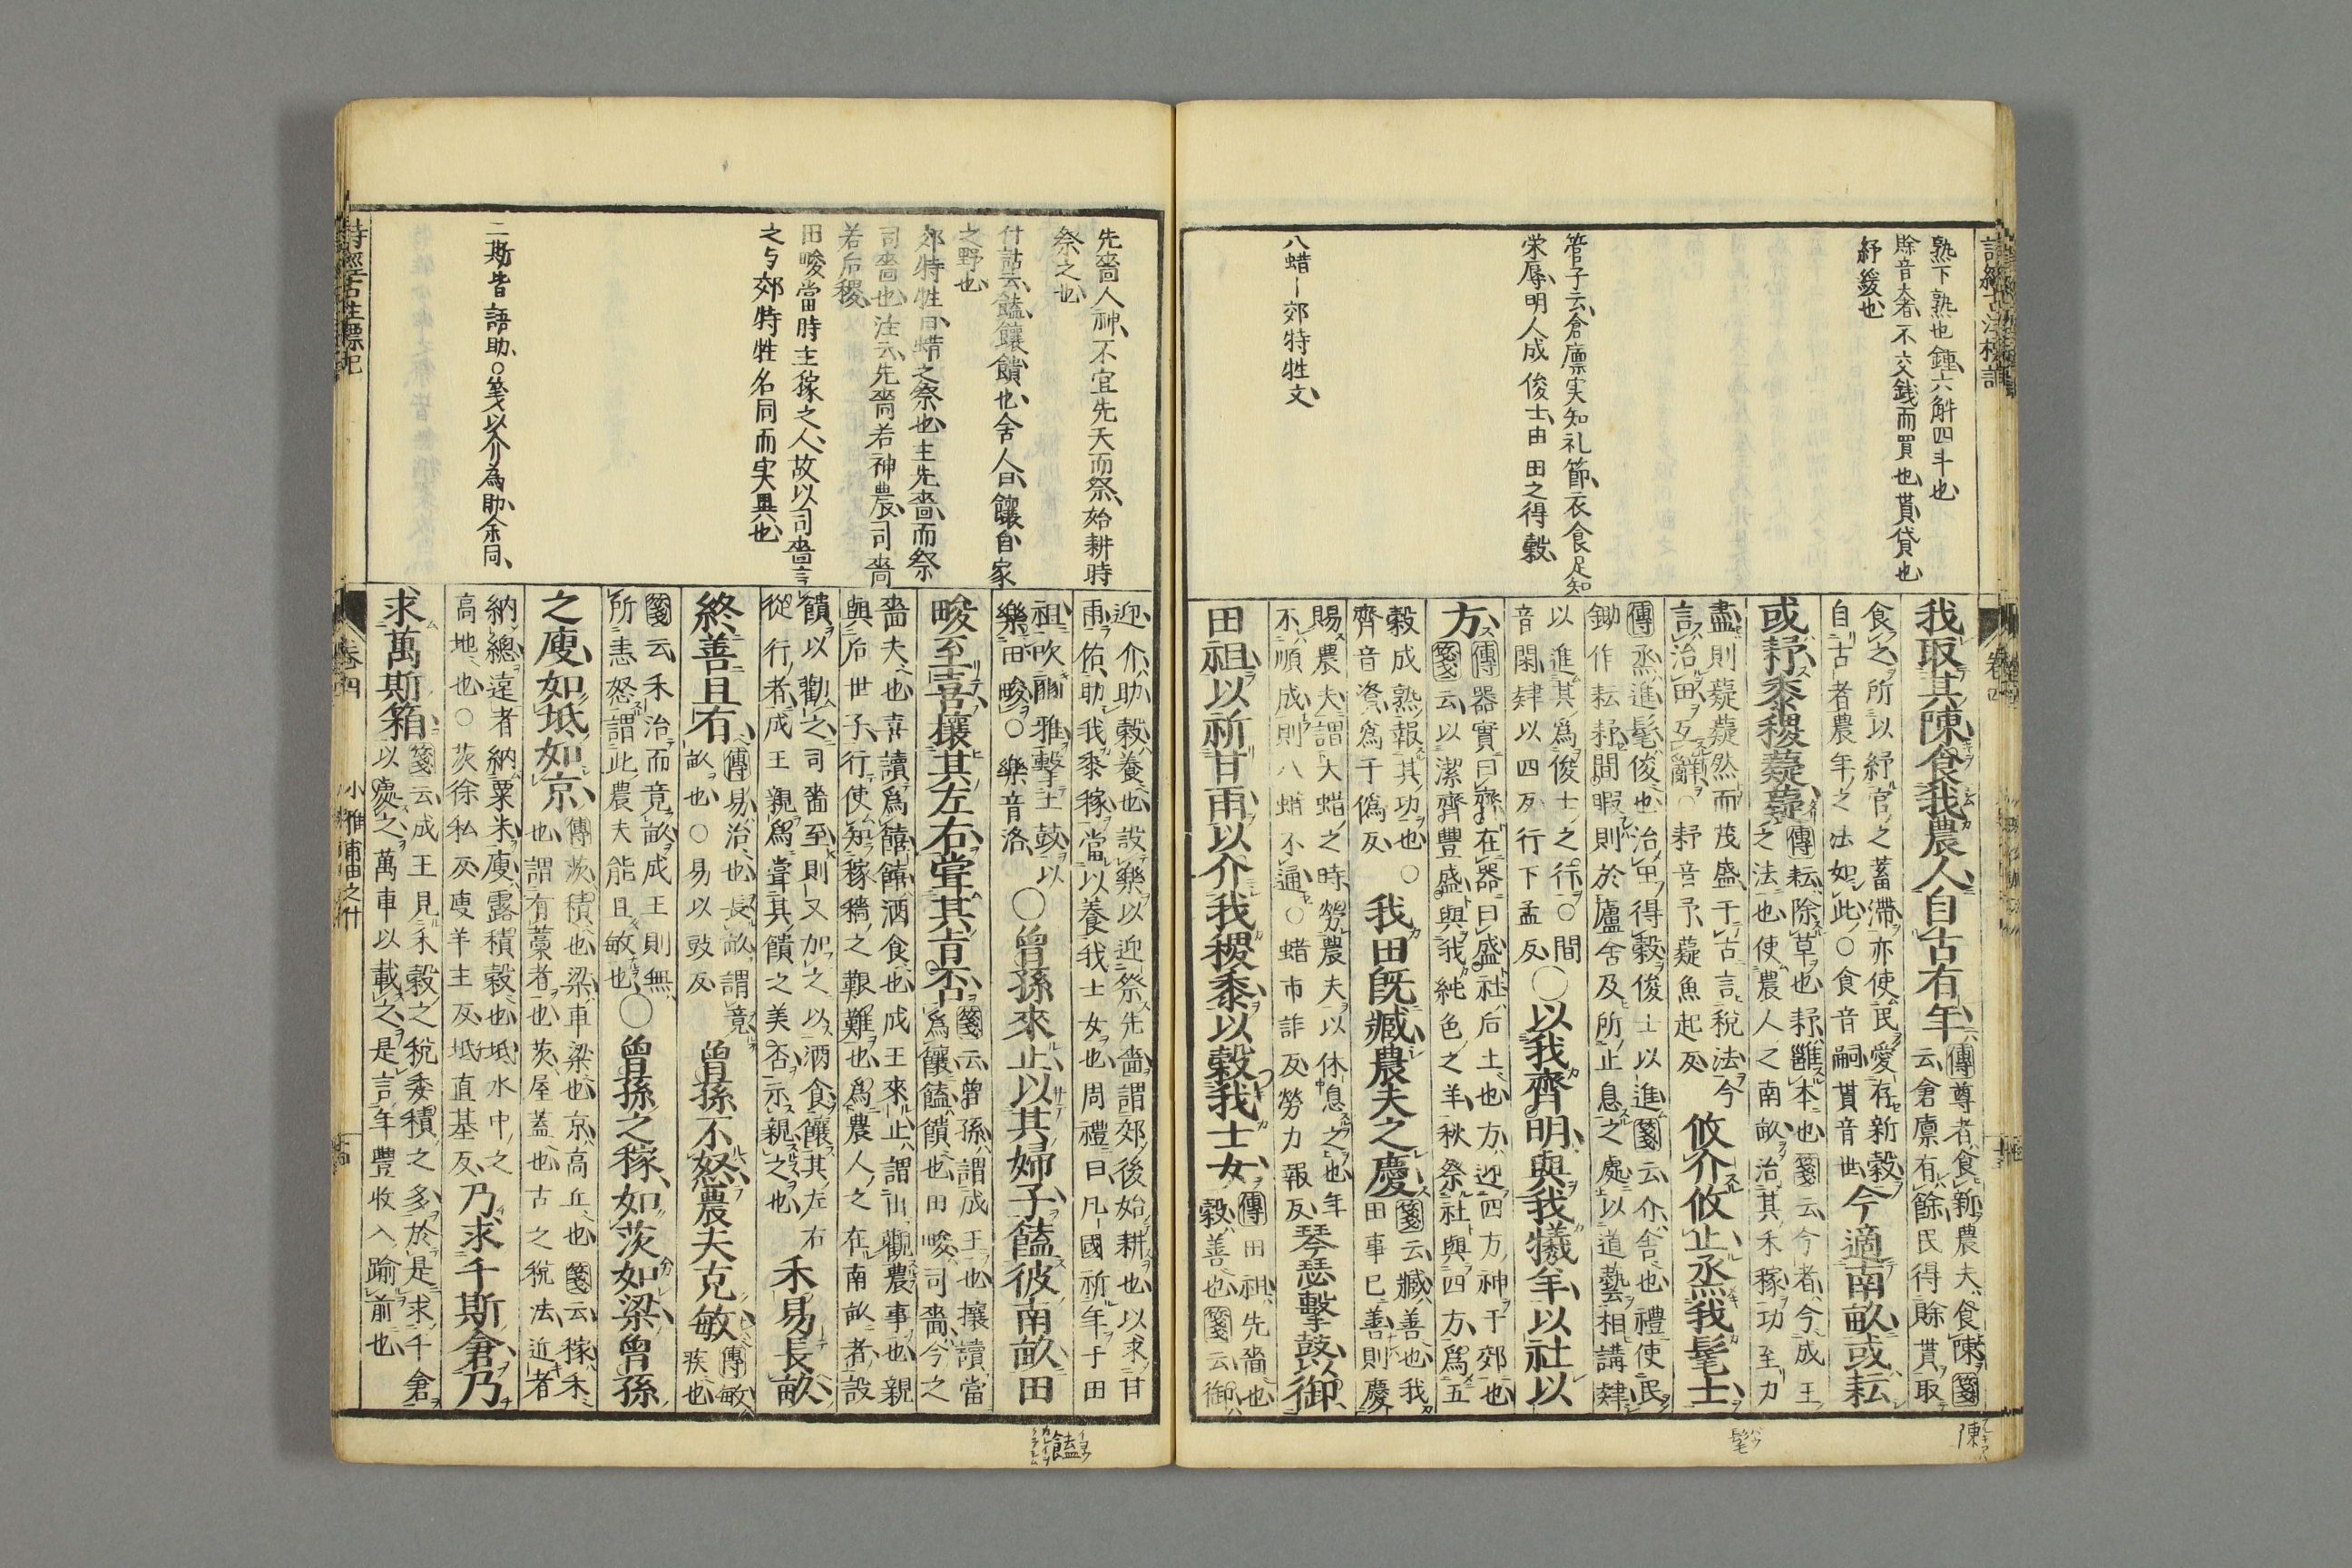 詩經古注標記
熟下熟也鍾六斛四斗也
賒音大者不交銭而買也貰貸也
紓緩也
管子云倉廩実知礼節衣食足知
栄辱明人成俊士由田之得穀
八蜡―郊特牲文
卷四
我取其陳食我農人自古有年
傳尊者食新農夫食陳箋
云倉廩有餘民得賒貰取
食之所以紓官之蓄滯亦使民愛存新穀
自古者農年之法如此○食音嗣貰音世
今適南畝或耘
或耔黍稷薿薿
傳耘除草也耔雝本也箋云今者今成王
之法也使農人之南畝治其禾稼功至力
盡則薿薿然而茂盛于古言税法今
言治田互辭○耔音予薿魚起反
攸介攸止烝我髦士
傳烝進髦俊也治田得穀俊士以進箋云介舍也禮使民
鋤作耘耔間暇則於廬舍及所止息之處以道藝相講肄
以進其爲俊士之行○間
音閑肄以四反行下孟反
○以我齊明與我犧羊以社以
方
傳器實曰齊在器曰盛社后土也方迎四方神于郊也
箋云以潔齊豐盛與我純色之羊秋祭社與四方爲五
穀成熟報其功也○
齊音粢爲于僞反
我田既臧農夫之慶
箋云臧善也我
田事已善則慶
賜農夫謂大蜡之時勞農夫以休息之也年
不順成則八蜡不通○蜡市詐反勞力報反
琴瑟擊鼓以御
田祖以祈甘雨以介我稷黍以穀我士女
傳田祖先嗇也
穀善也箋云御
陳
髦
先嗇人神不宜先天而祭始耕時
祭之也
什詁云饁饟饋也舍人曰饟自家
之野也
郊特牲曰蜡之祭也主先嗇而祭
司嗇也注云先嗇若神農司嗇
若后稷
田畯當時主稼之人故以司嗇言
之与郊特牲名同而実異也
二斯皆語助○箋以介為助余同
迎介助穀養也設樂以迎祭先嗇謂郊後始耕也以求甘
雨佑助我黍稷當以養我士女也周禮曰凡國祈年于田
祖吹豳雅擊土鼓以
樂田畯○樂音洛
○曾孫來止以其婦子饁彼南畝田
畯至喜攘其左右嘗其旨否
箋云曾孫謂成王也攘讀當
爲饟饁饋也田畯司嗇今之
嗇夫也喜讀爲饎饎酒食也成王來止謂出觀農事也親
與后世子行使知稼穡之艱難也爲農人之在南畝者設
饋以勸之司嗇至則又加之以酒食饟其左右
從行者成王親爲嘗其饋之美否示親之也
禾易長畝
終善且有
傳易治也長畝謂竟
畝也○易以豉反
曾孫不怒農夫克敏
傳敏
疾也
箋云禾治而竟畝成王則無
所恚怒謂此農夫能且敏也
○曾孫之稼如茨如梁曾孫
之庾如坻如京
傳茨積也梁車梁也京高丘也箋云稼禾
也謂有藁者也茨屋蓋也古之税法近者
納緫遠者納粟米庾露積穀也坻水中之
高地也○茨徐私反庾羊主反坻直基反
乃求千斯倉乃
求萬斯箱
箋云成王見禾穀之税委積之多於是求千倉
以處之萬車以載之是言年豐收入踰前也
詩經古注標記
卷四
小雅甫田之什
饁